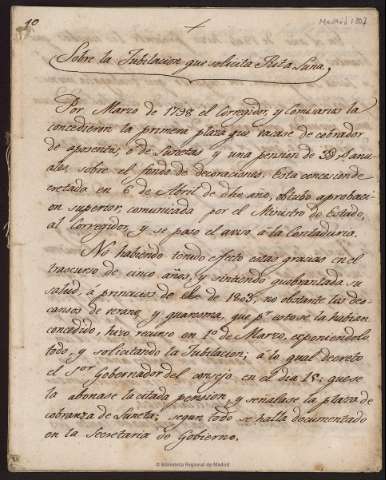 10
Madrid 1807
Sobre la Jubilacion que solicita Rita Luna.
Por Marzo de 1798 el Corregidor, y Comisarios la
concedieron la primera plaza que vacase de cobrador
de aposentos, ó de lunetas y una pension de 3 D. anu-
ales, sobre el fondo de decoraciones. Esta concesion de-
cretada en 6 de Abril de dho año, obtubo aprobaci-
on superior, comunicada por el Ministro de Estado,
al Corregidor, y se paso el aviso á la Contaduria.
No habiendo tenido efecto estas gracias en el
trascurso de cinco años, y sintiendo quebrantada su
salud, á principios de de 1803, no obstante los des-
cansos de verano, y quaresma, que pª esto se la habian
concedido, hizo recurso en 1º de Marzo, exponiendolo
todo, y solicitando la Jubilacion; á lo qual decretó
el Sor Gobernador del consejo en el dia 15, que se
la abonase la citada pension, y señalase la plaza de
cobranza de luneta; segun todo se halla documentado
en la Secretaria de Gobierno.
© Biblioteca Regional de Madrid